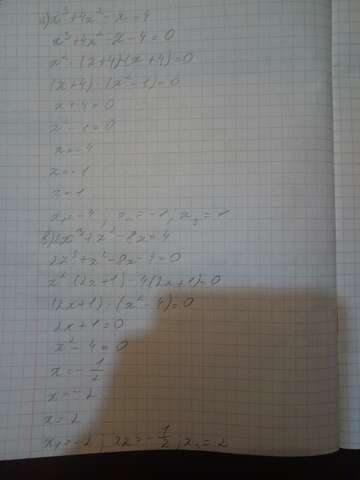 a) x³+4x²-x=4
x³+4x²-x-4=0
x²·(x+4)-(x+4)=0
(x+4)·(x²-1)=0
x+4=0
x²-1=0
x=-4
x=-1
x=1
x₁=-4; x₂=-1; x₃=1
в) 2x³+x²-8x=4
2x³+x²-8x-4=0
x²·(2x+1)-4(2x+1)=0
(2x+1)·(x²-4)=0
2x+1=0
x²-4=0
x=-1/2
x=-2
x=2
x₁=-2; x2=-1/2; x₃=2